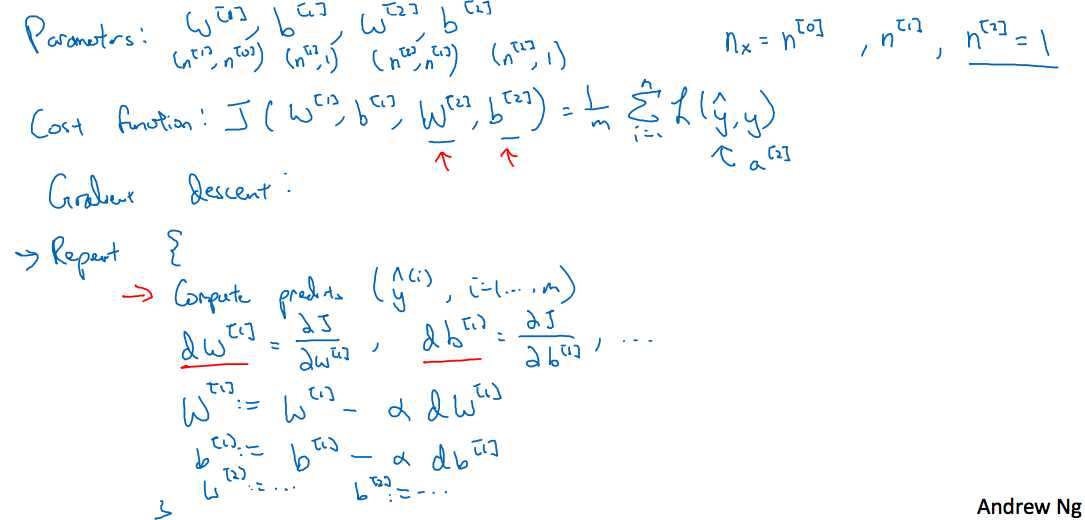 Parameters: W^[1], b^[1], W^[2], b^[2]
(n^[1], n^[0]) (n^[1], 1) (n^[2], n^[1]) (n^[2], 1)
n_x = n^[0], n^[1], n^[2] = 1
Cost function: J(W^[1], b^[1], W^[2], b^[2]) = 1/m ∑_{i=1}^{n} ℒ(ŷ, y)
↑ ↑ ↖ a^[2]
Gradient descent:
→ Repeat {
→ Compute predicts (ŷ^(i), i=1...., m)
dW^[1] = ∂J/∂W^[1], db^[1] = ∂J/∂b^[1], ...
W^[1] := W^[1] - α dW^[1]
b^[1] := b^[1] - α db^[1]
W^[2] := ... b^[2] := ...
}
Andrew Ng